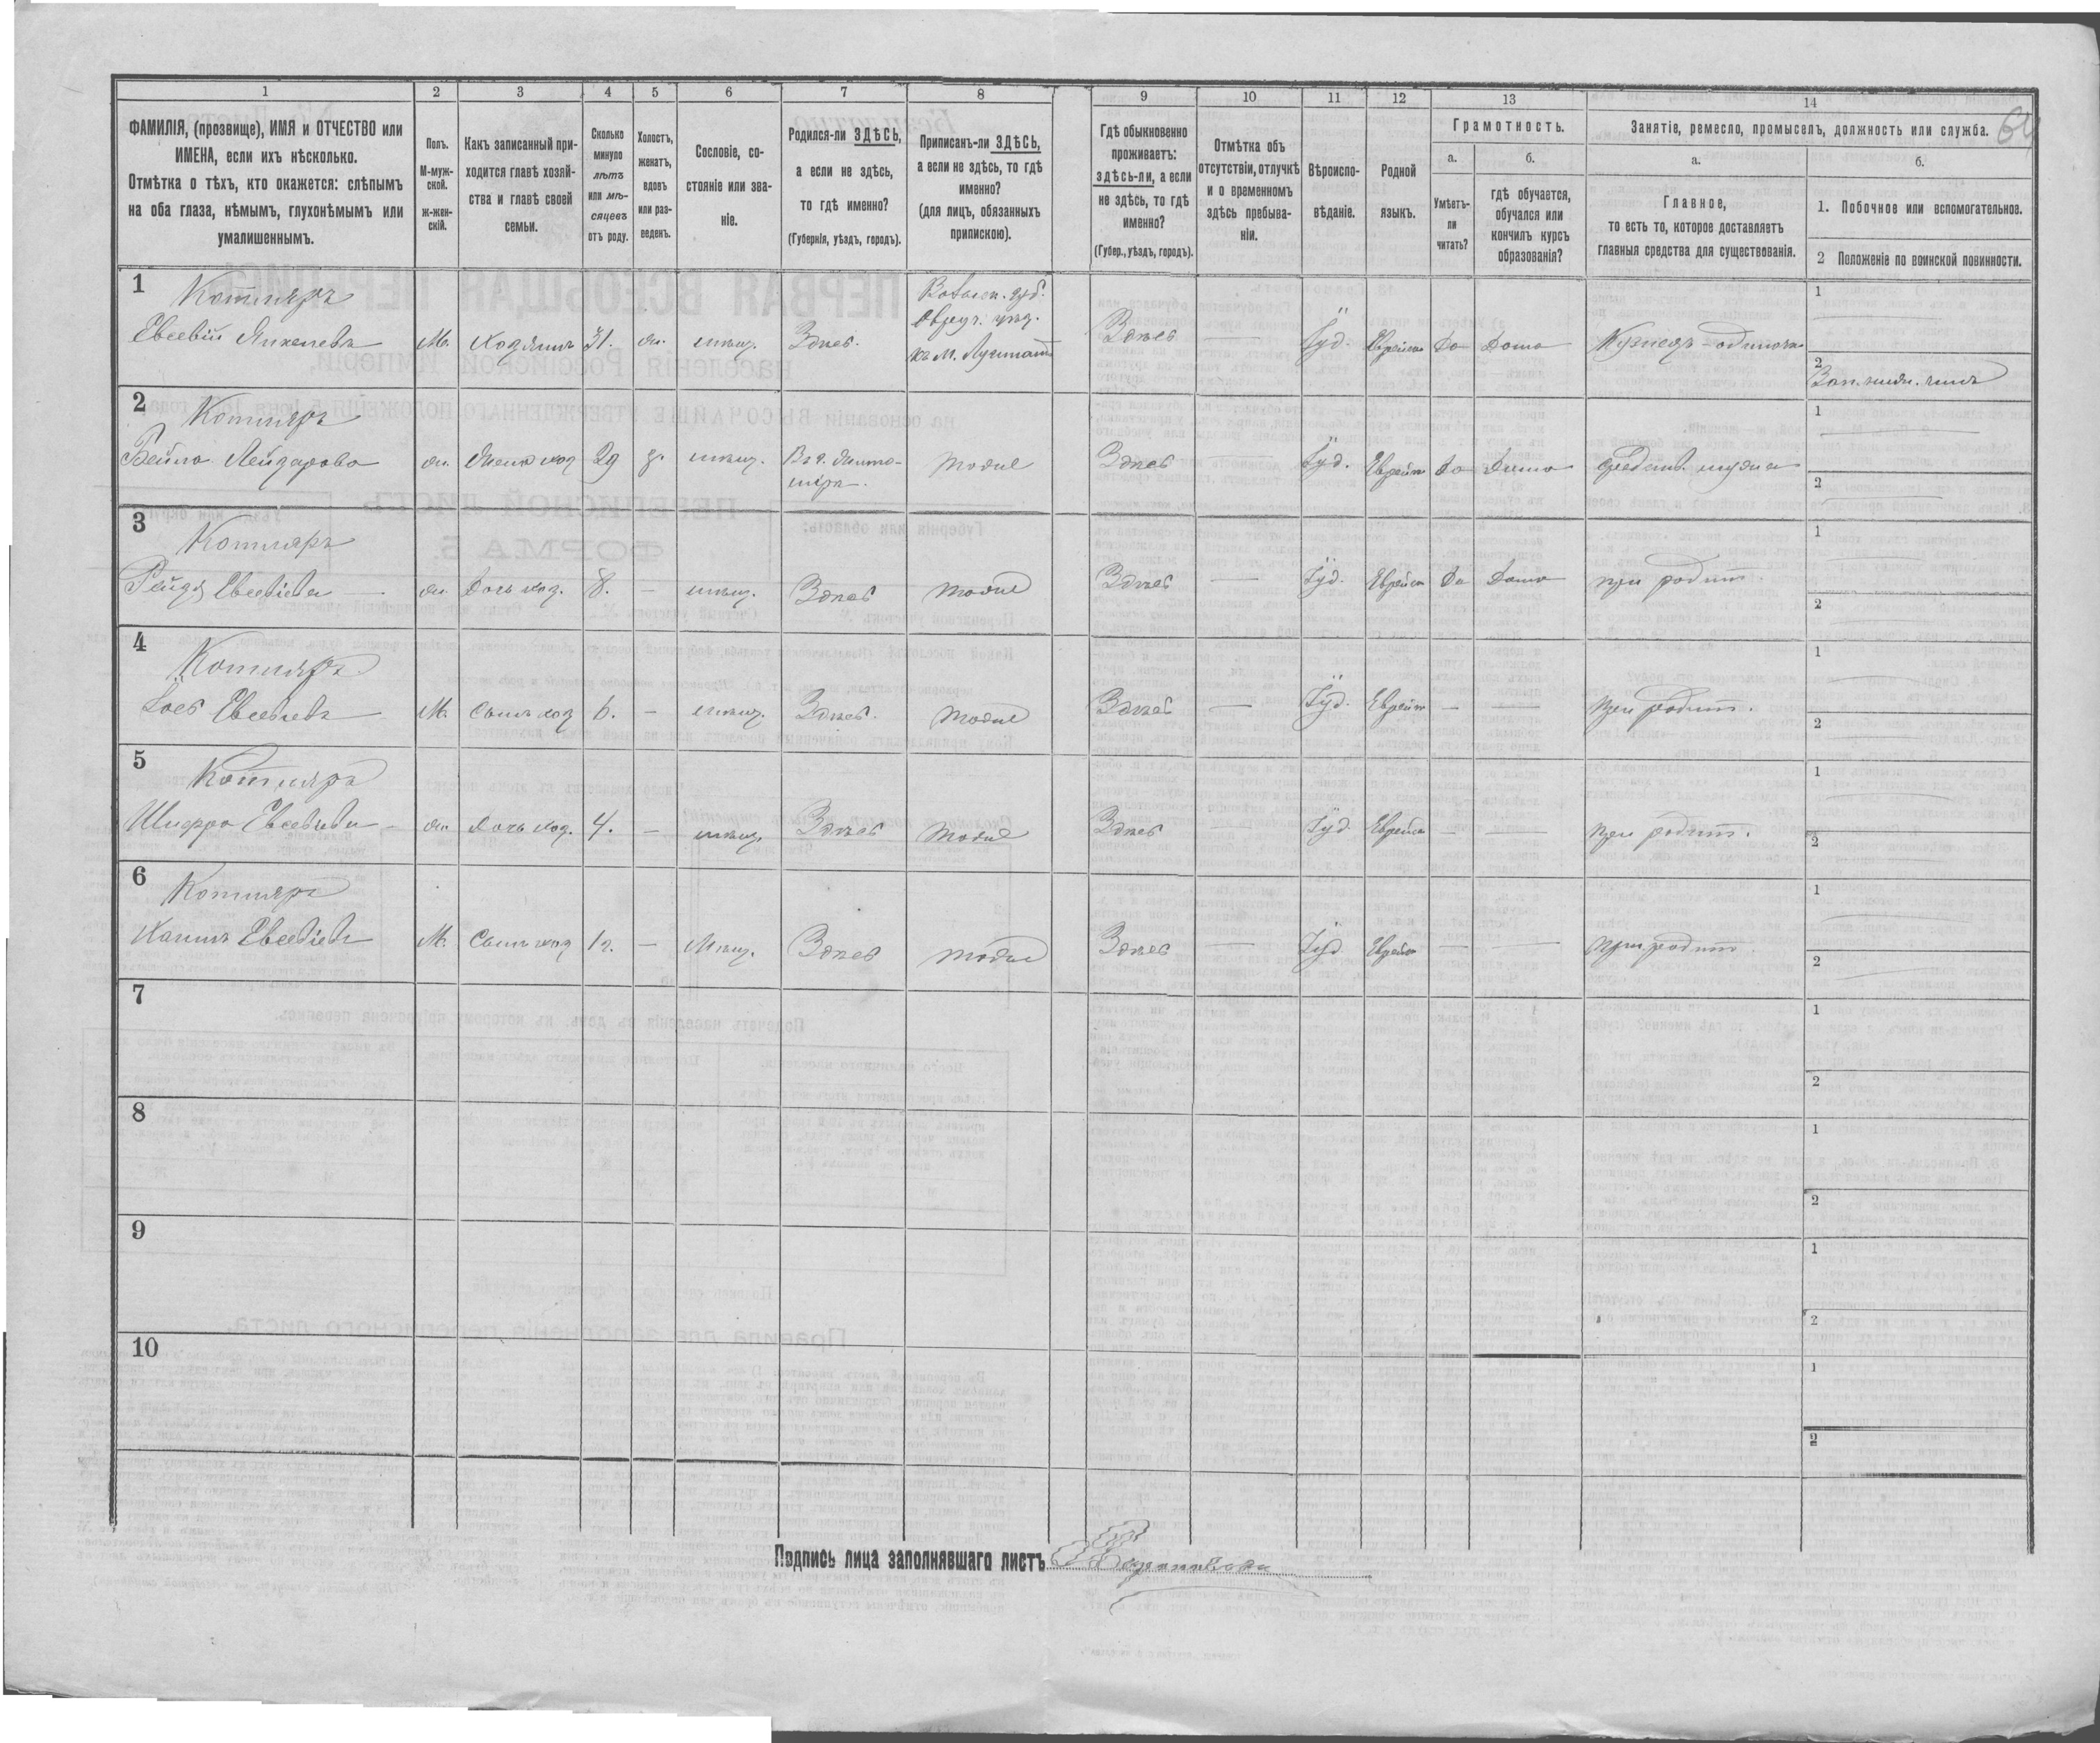 64
1 2 3 4 5 6 7 8 9 10 11 12 13 14
ФАМИЛІЯ, (прозвище), ИМЯ и ОТЧЕСТВО или
ИМЕНА, если ихъ нѣсколько.
Отмѣтка о тѣхъ, кто окажется: слѣпымъ
на оба глаза, нѣмымъ, глухонѣмымъ или
умалишеннымъ.
Полъ.
М-муж-
ской.
ж-жен-
скій.
Какъ записанный при-
ходится главѣ хозяй-
ства и главѣ своей
семьи.
Сколько
минуло
лѣтъ
или мѣ-
сяцевъ
отъ роду.
Холостъ,
женатъ,
вдовъ
или раз-
веденъ.
Сословіе, со-
стояніе или зва-
ніе.
Родился-ли ЗДѢСЬ,
а если не здѣсь,
то гдѣ именно?
(Губернія, уѣздъ, городъ).
Приписанъ-ли ЗДѢСЬ,
а если не здѣсь, то гдѣ
именно?
(для лицъ, обязанныхъ
припискою).
Гдѣ обыкновенно
проживаетъ:
здѣсь-ли, а если
не здѣсь, то гдѣ
именно?
(Губер., уѣздъ, городъ).
Отмѣтка объ
отсутствіи, отлучкѣ
и о временномъ
здѣсь пребыва-
ніи.
Вѣроиспо-
вѣданіе.
Родной
языкъ.
Грамотность.
а.
Умѣетъ-
ли
читать?
б.
гдѣ обучается,
обучался или
кончилъ курсъ
образованія?
Занятіе, ремесло, промыселъ, должность или служба.
а.
Главное,
то есть то, которое доставляетъ
главныя средства для существованія.
б.
1. Побочное или вспомогательное.
2 Положеніе по воинской повинности.
1
Котляръ
Евсевій
М. Хозяинъ 31. ж. мѣщ. Здѣсь.
Волын. губ.
Овруч. уѣзд.
Здѣсь — Іуд. Еврейск Да Дома
1
2
2
Котляръ
Бейла Лейзерова
ж. Жена хоз 29 з. мѣщ.
тоже Здѣсь — Іуд. Еврейск Да Дома
1
2
3
Котляръ
Рейзя Евсевіева
ж. Дочь хоз. 8. — мѣщ. Здѣсь тоже Здѣсь — Іуд. Еврейск Да Дома при родит.
1
2
4
Котляръ
Евсевіевъ
М. Сынъ хоз 6. — мѣщ. Здѣсь. тоже Здѣсь — Іуд. Еврейск — — при родит.
1
2
5
Котляръ
Евсевіева
ж. Дочь хоз. 4. — мѣщ. Здѣсь тоже Здѣсь Іуд. Еврейск — — при родит.
1
2
6
Котляръ
Евсевіевъ
М. Сынъ хоз 1г. — Мѣщ. Здѣсь тоже Здѣсь — Іуд Еврейск — — при родит
1
2
7
1
2
8
1
2
9
1
2
10
1
2
Подпись лица заполнявшаго листъ